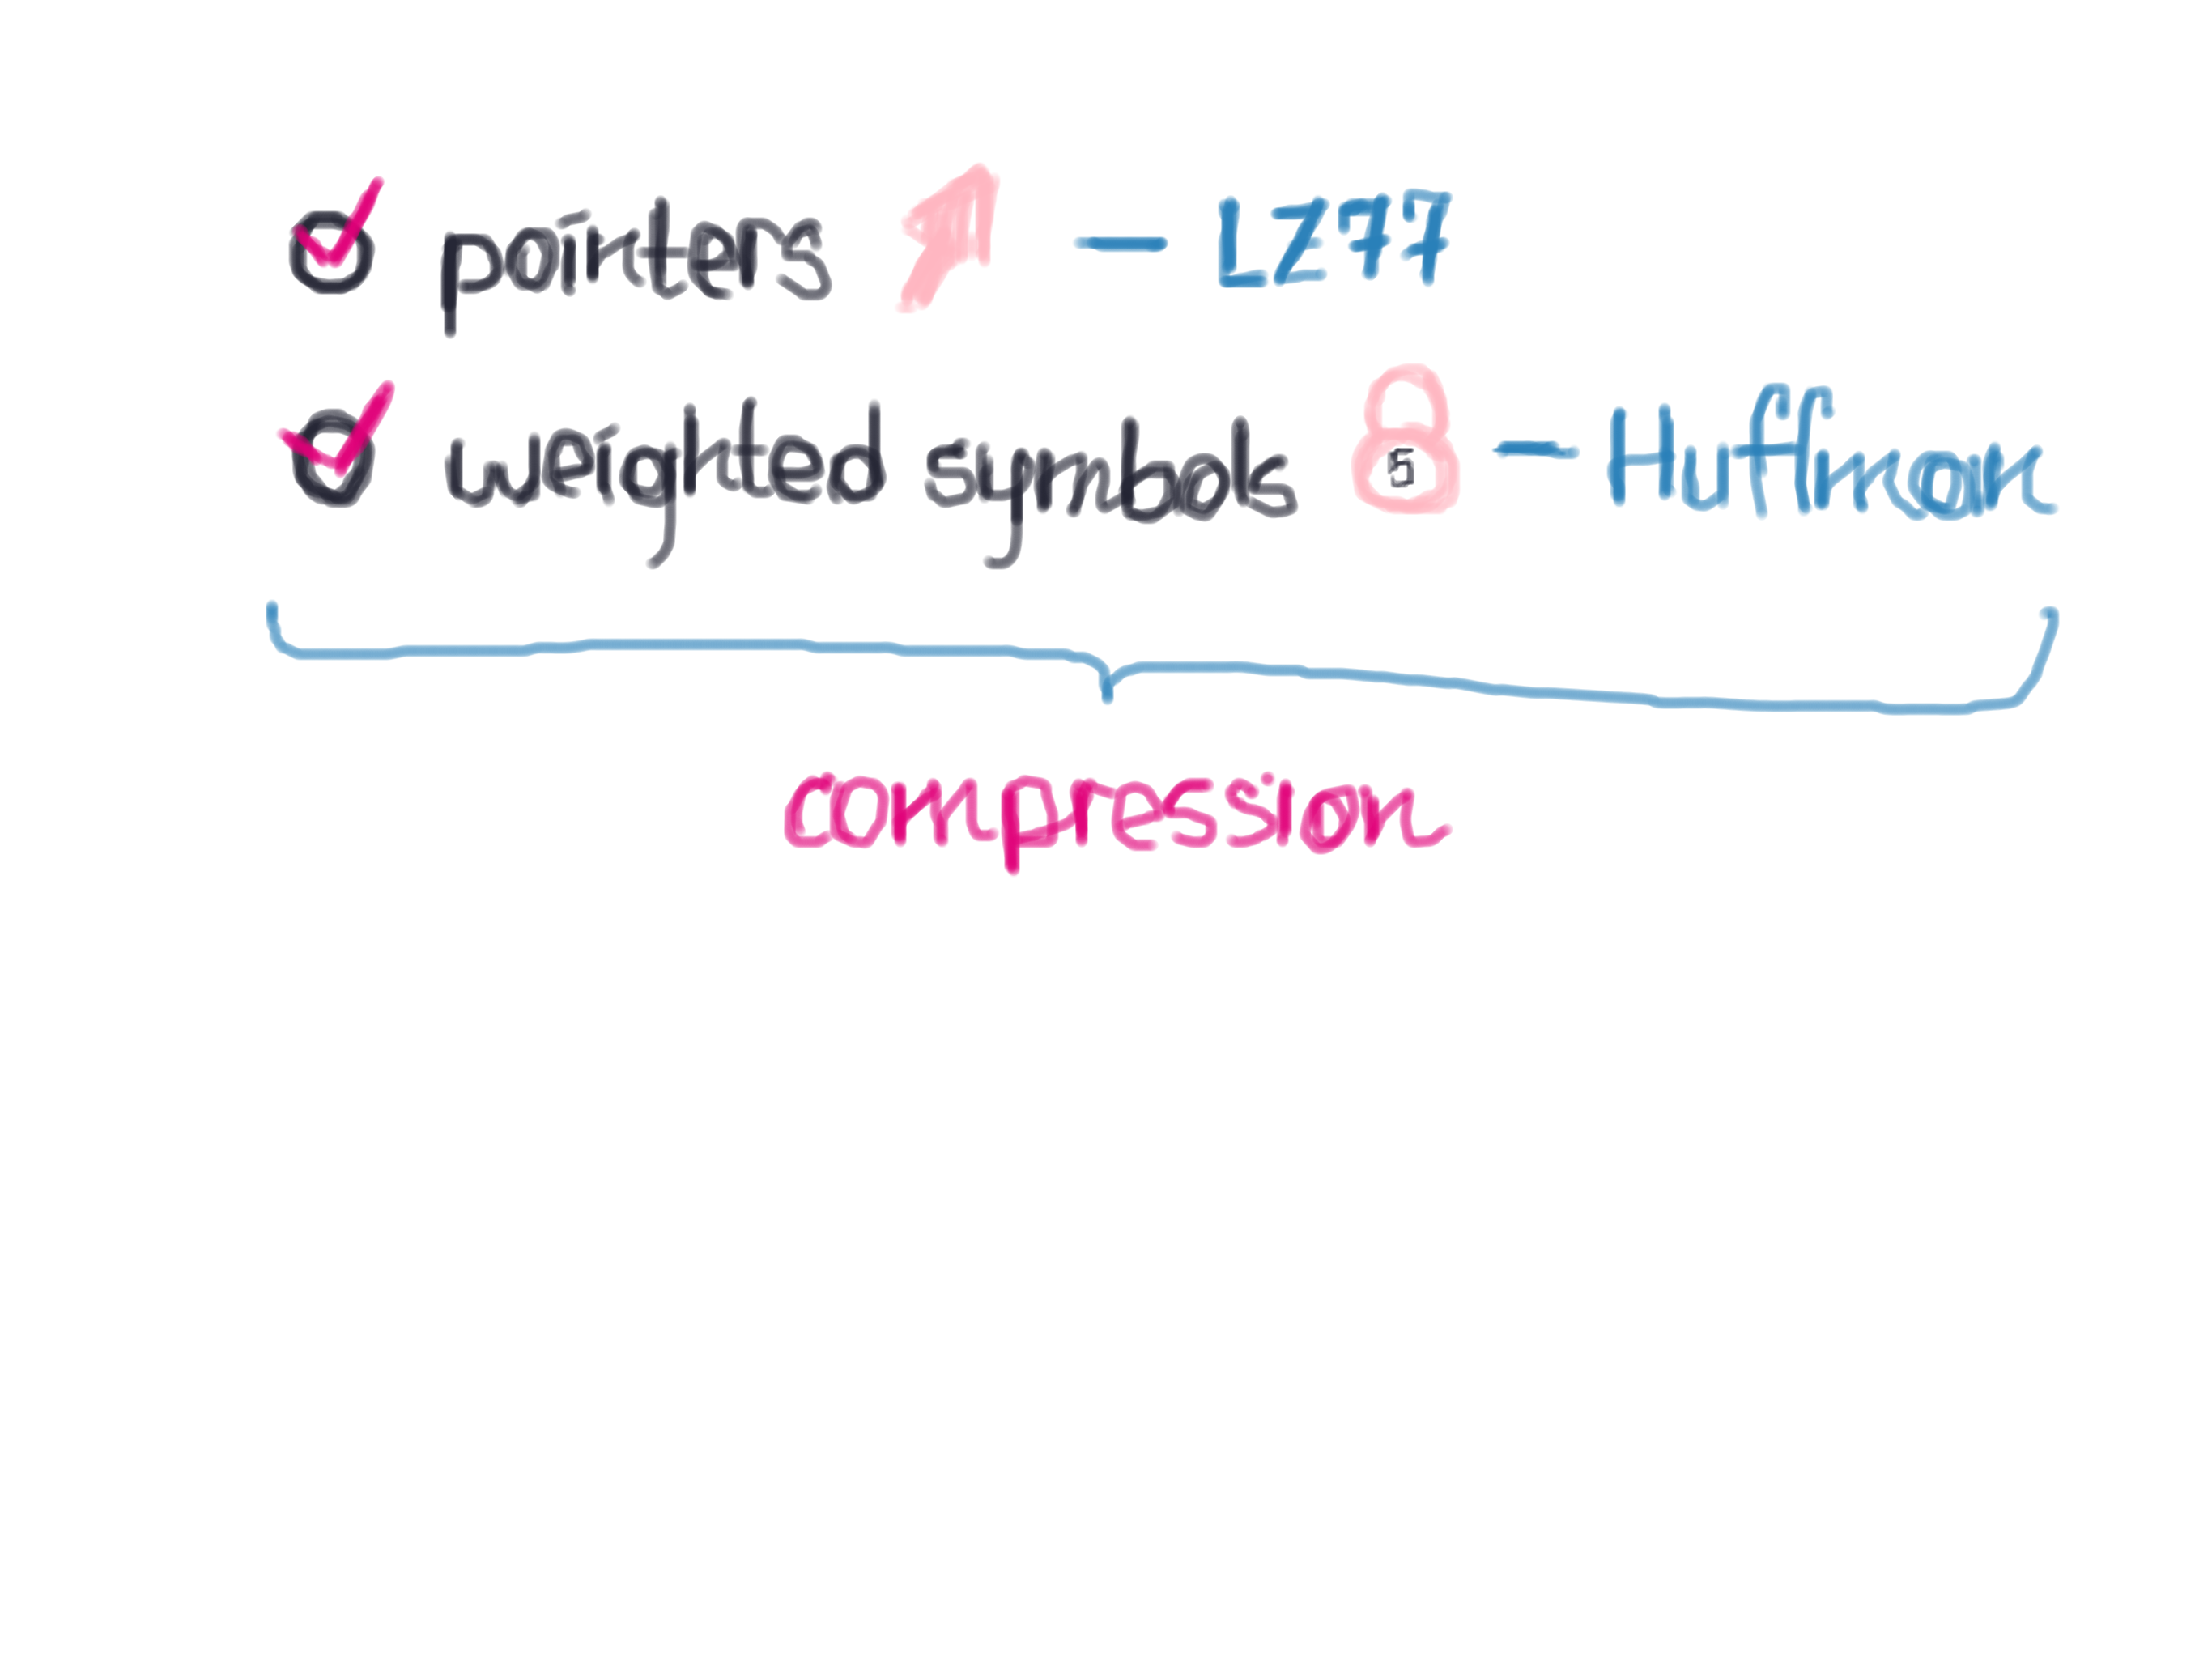 pointers - LZ77
weighted symbols 5 - Huffman
compression